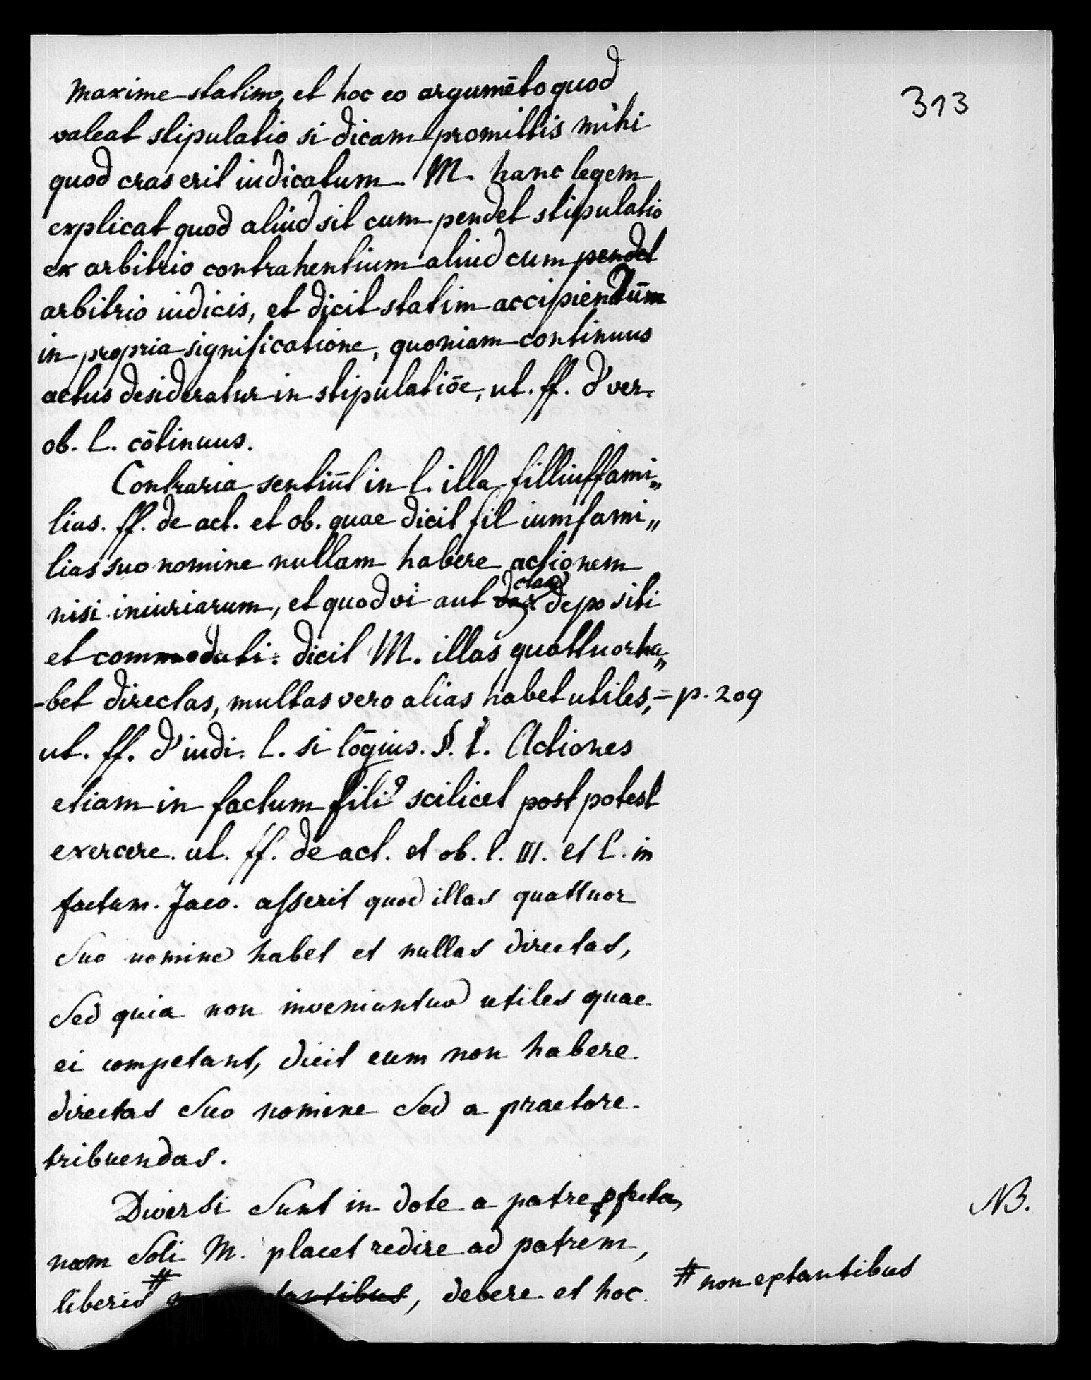 313
maxime statim, et hoc eo argumēto quod
valeat stipulatio si dicam promittis mihi
quod cras erit iudicatum. M. hanc legem
explicat quod aliud sit cum pendet stipulatio
ex arbitrio contrahentium aliud cum pendet
arbitrio iudicis, et dicit statim accipiendūm
in propria significatione, quoniam continuus
actus desideratur in stipulatiōe, ut. ff. d' ver.
ob. l. cōtinuus.
Contraria sentiūt in l. illa filliuffami„
lias. ff. de act. et ob. quae dicit filiumfami„
lias suo nomine nullam habere actionem
nisi iniuriarum, et quod vi aut clam depositi
et commodati. dicit M. illas quattuor ha„
-bet directas, multas vero alias habet utiles, = p. 209
ut. ff. d' iudi. l. si lōgius. §. I. Actiones
etiam in factum fili9 scilicet post potest
exercere. ut. ff. de act. et ob. l. III. et l. in
factum. Jaco. asserit quod illas quattuor
suo nomine habet et nullas directas,
sed quia non inveniuntur utiles quae
ei competant, dicit eum non habere
directas suo nomine sed a praetore
tribuendas.
Diversi sunt in dote a patre pfecta, NB.
nam soli M. placet redire ad patrem,
liberis # debere et hoc # non extantibus